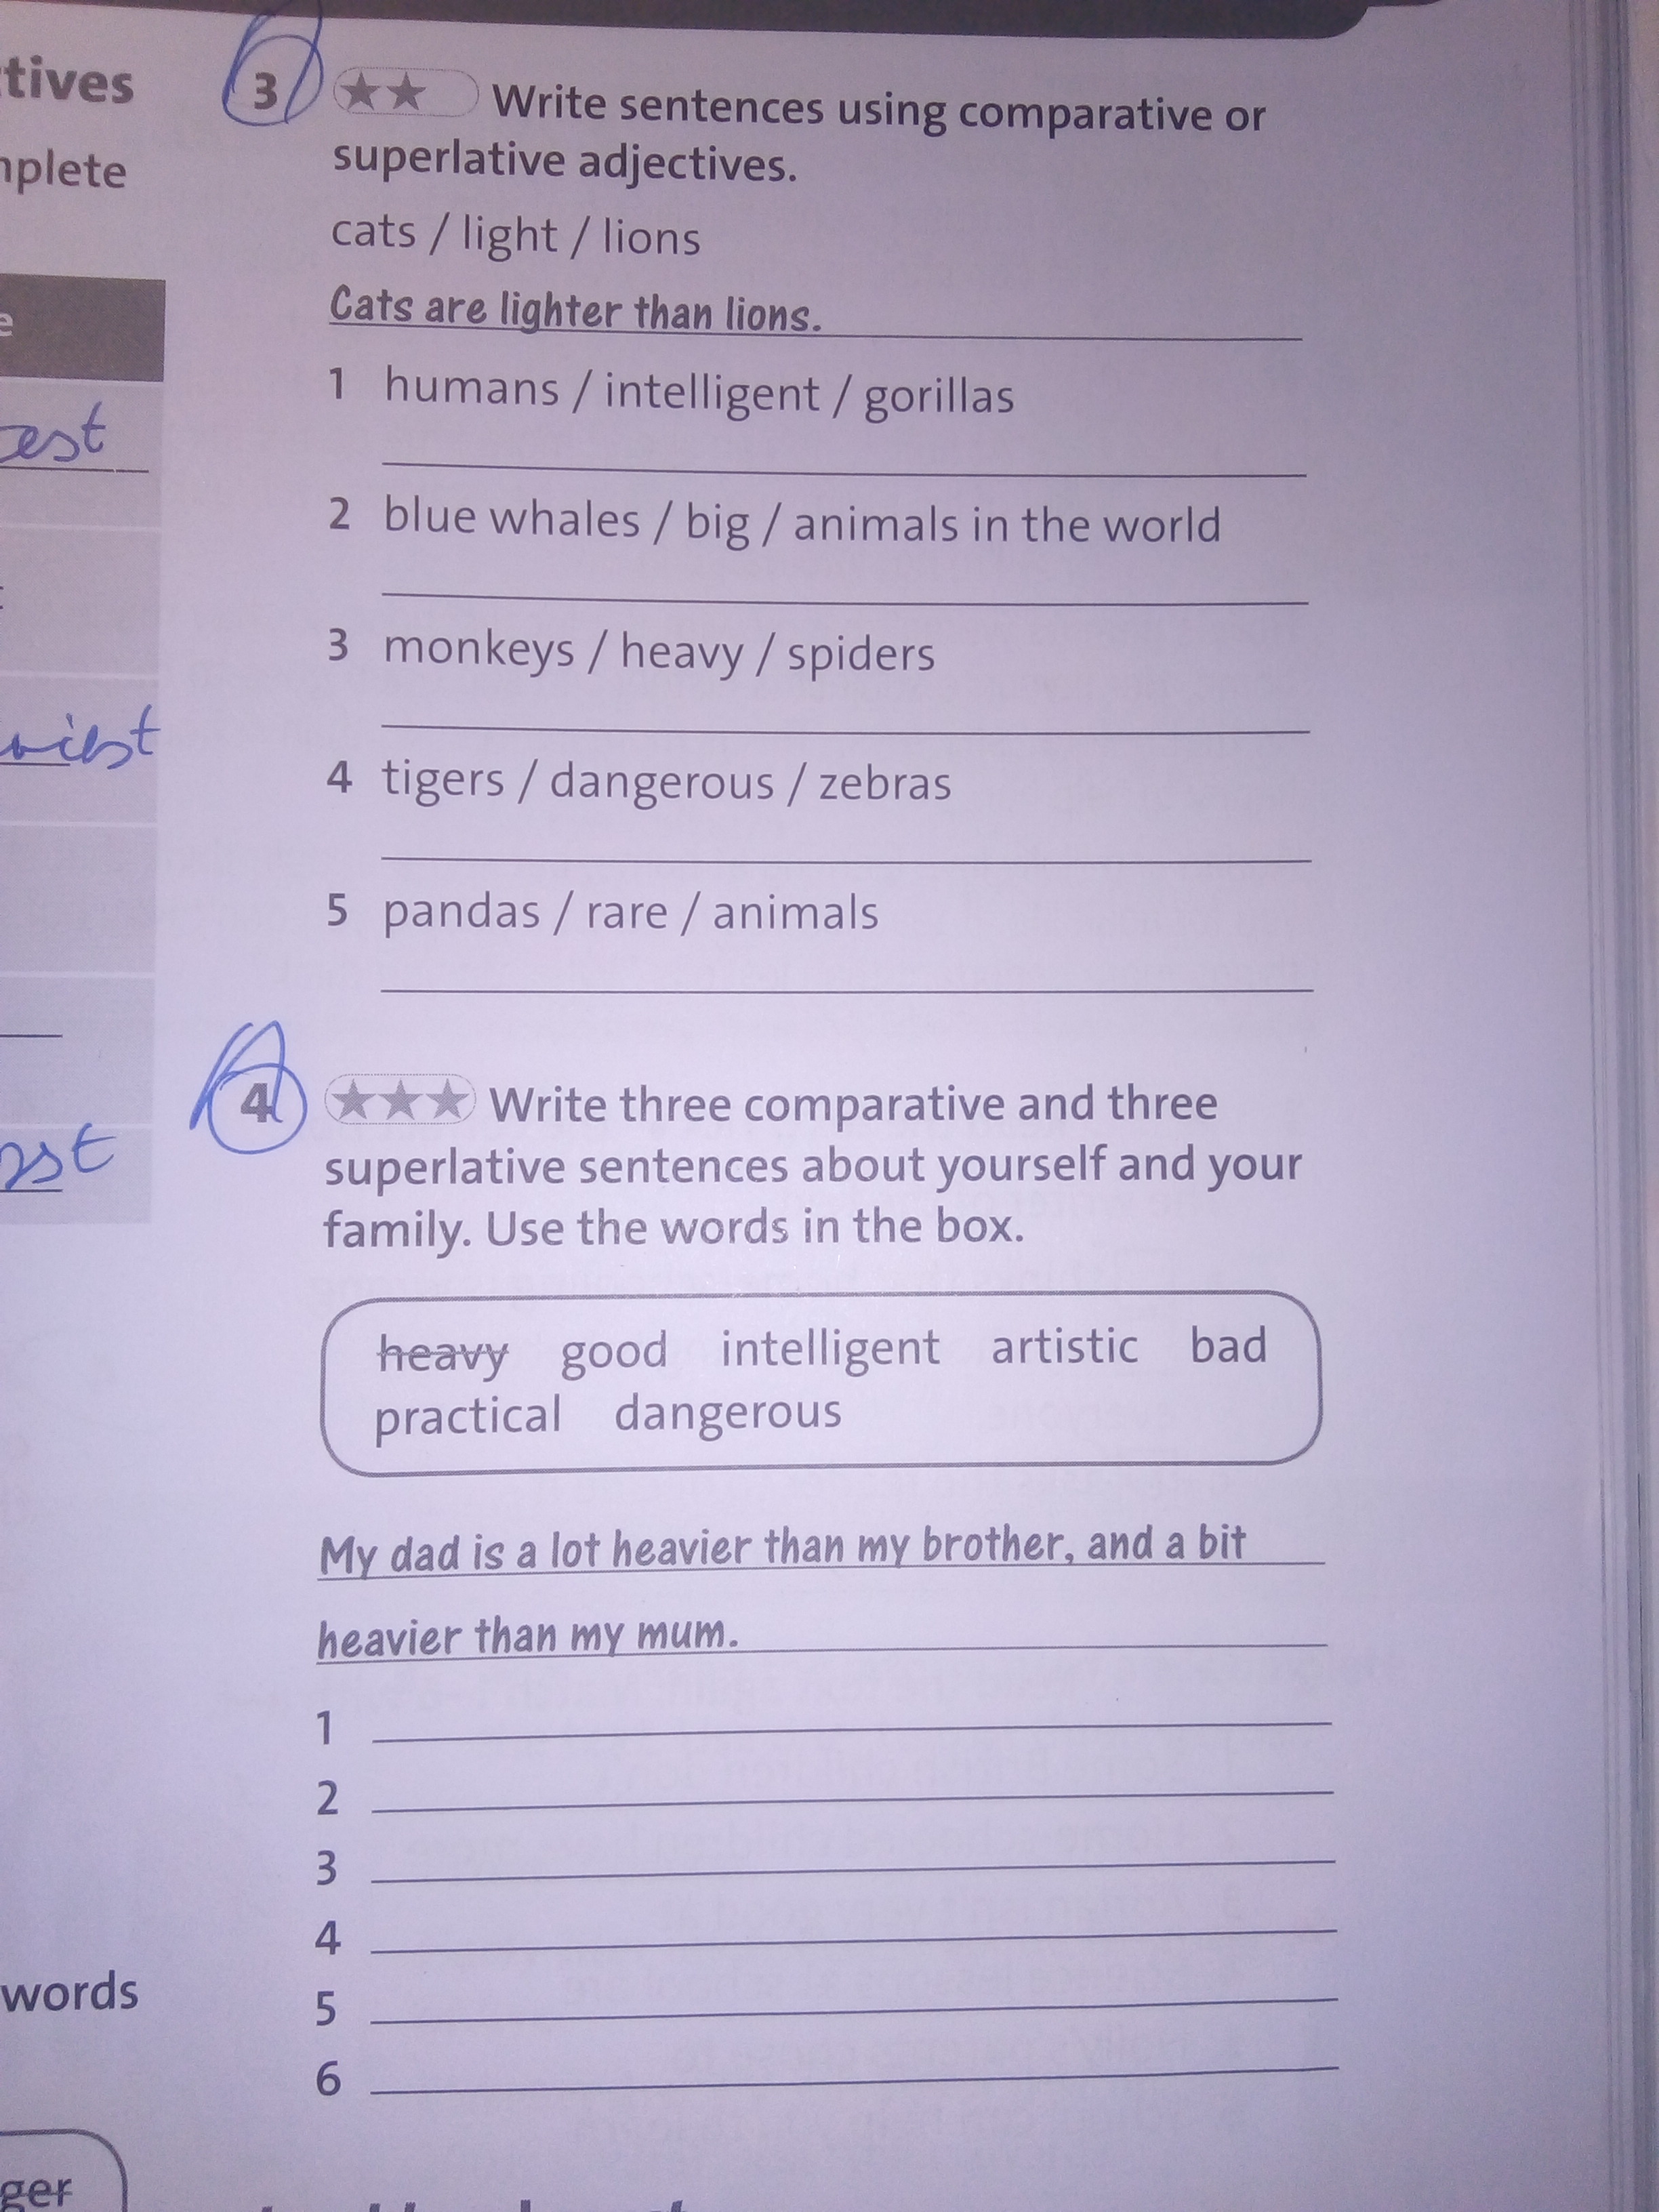 tives
mplete
e
est
iest
st
words
ger
3 ★★ Write sentences using comparative or
superlative adjectives.
cats / light / lions
Cats are lighter than lions.
1 humans / intelligent / gorillas
2 blue whales / big / animals in the world
3 monkeys / heavy / spiders
4 tigers / dangerous / zebras
5 pandas / rare / animals
4 ★★★ Write three comparative and three
superlative sentences about yourself and your
family. Use the words in the box.
heavy good intelligent artistic bad
practical dangerous
My dad is a lot heavier than my brother, and a bit
heavier than my mum.
1
2
3
4
5
6